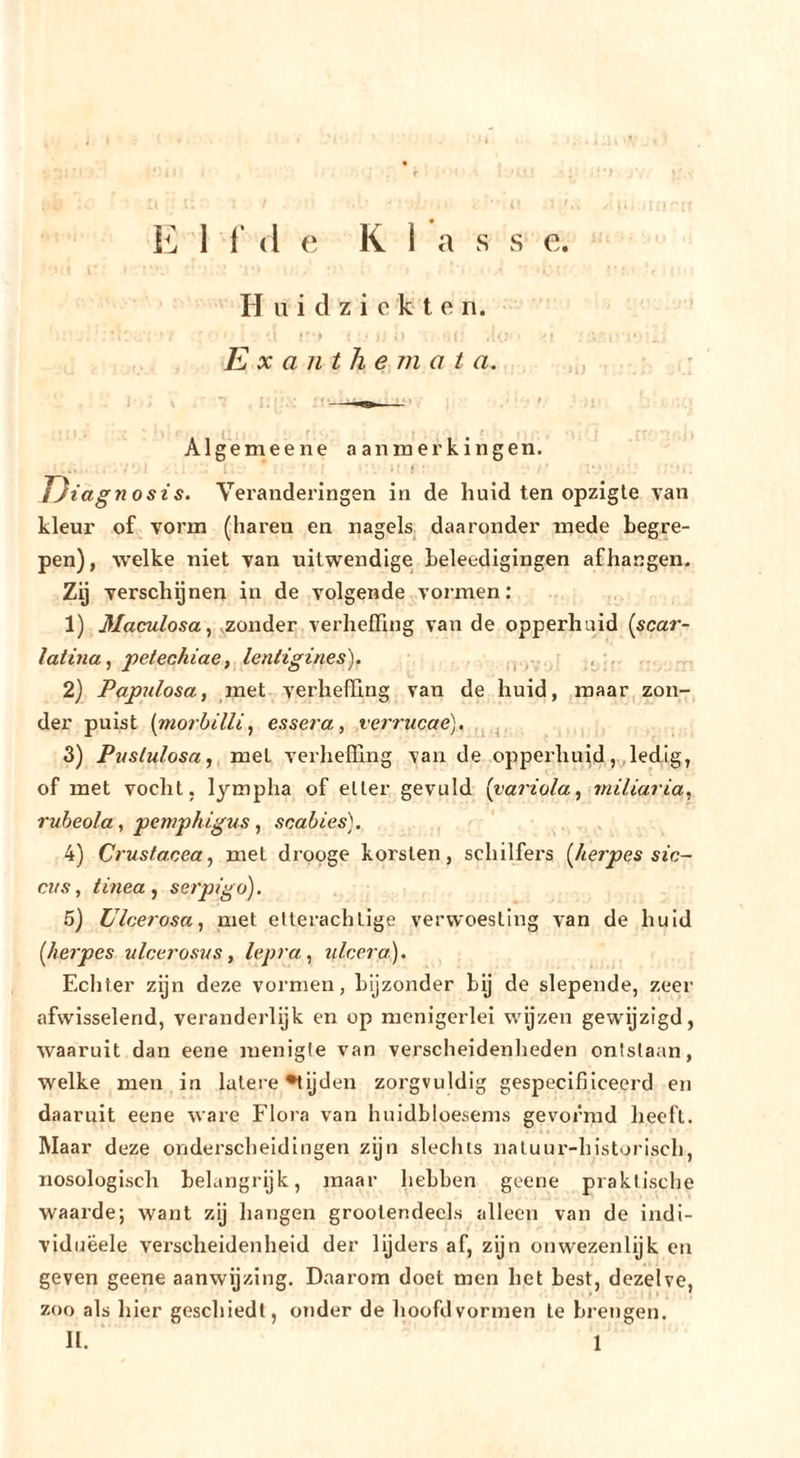 Elfde Klasse.
Huidziekten.
Exanthemata.
Algemeene aanmerkingen.
Diagnosis. Veranderingen in de huid ten opzigte van
kleur of vorm (haren en nagels daaronder mede begre-
pen), welke niet van uitwendige beleedigingen afhangen.
Zij verschijnen in de volgende vormen:
1) Maculosa, zonder verheffing van de opperhuid (scar-
latina, petechiae, lentigines).
2) Papulosa, met verheffing van de huid, maar zon-
der puist (morbilli, essera, verrucae).
3) Pustulosa, met verheffing van de opperhuid, ledig,
of met vocht, lympha of etter gevuld (variola, miliaria,
rubeola, pemphigus, scabies).
4) Crustacea, met drooge korsten, schilfers (herpes sic-
cus, tinea, serpigo).
5) Ulcerosa, met etterachtige verwoesting van de huid
(herpes ulcerosus, lepra, ulcera).
Echter zijn deze vormen, bijzonder bij de slepende, zeer
afwisselend, veranderlijk en op menigerlei wijzen gewijzigd,
waaruit dan eene menigte van verscheidenheden ontstaan,
welke men in latere tijden zorgvuldig gespecifiiceerd en
daaruit eene ware Flora van huidbloesems gevormd heeft.
Maar deze onderscheidingen zijn slechts natuur-historisch,
nosologisch belangrijk, maar hebben geene praktische
waarde; want zij hangen grootendeels alleen van de indi-
viduëele verscheidenheid der lijders af, zijn onwezenlijk en
geven geene aanwijzing. Daarom doet men het best, dezelve,
zoo als hier geschiedt, onder de hoofdvormen te brengen.
II. 1